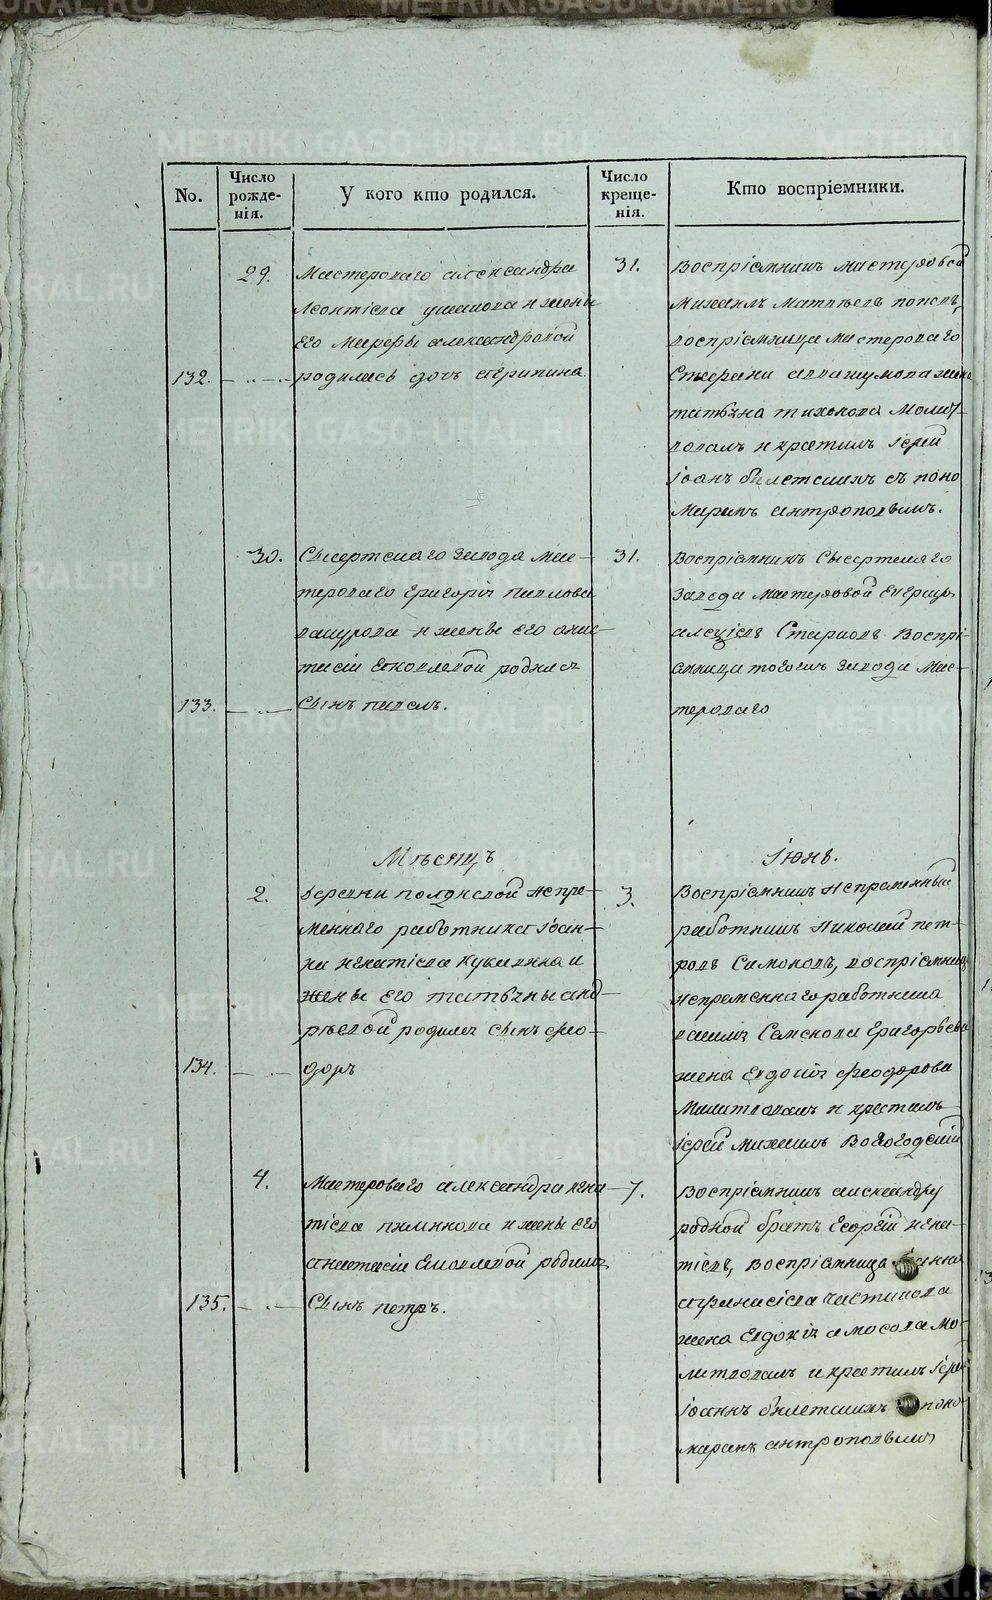 No.
Число рожде-нія.
У кого кто родился.
Число креще-нія.
Кто воспріемники.
29.
Мастероваго александра
Леонтіева ушакова и жены
Его Мавры александровой
132.
родилась дочь агрипина
31.
Воспріемникъ мастеровой
Михаилъ Матвѣевъ поповъ,
воспріемница мастероваго
жена
татьяна тихонова Молит-
вовалъ и крестилъ Іерей
Іоанъ съ поно
маремъ антроповымъ.
30.
Сысертскаго завода Мас-
тероваго Григорія павлова
и жены его анас-
тасіи яковлевой родился
133.
Сынъ павелъ.
31.
Воспріемникъ Сысертскаго
Завода Мастеровой
алексіевъ Старковъ Воспрі-
емница тогожъ завода Мас-
тероваго
Мѣсяцъ
Іюнь.
2.
деревни полднѣвой Непре-
меннаго работника Іоан-
на игнатіева и
жены Его татьяны анд-
рѣевой родился сынъ фео-
134.
доръ
3.
Воспріемникъ Непременный
работникъ Николай пет-
ровъ Самоковъ, воспріемница
непременнаго работника
Семенова Григорьева
жена Евдокія феодорова
Молитвовалъ и крестилъ
Іерей Михаилъ Вологодскій
4.
Мастероваго александра игна
тіева и жены его
анастасіи яковлевой родился
135.
Сынъ петръ.
7.
Воспріемникъ александру
родной братъ Георгій игна-
тіевъ, воспріемница
жена Евдокія амосова мо-
литвовалъ и крестилъ Іерей
Іоаннъ поно-
маремъ антроповымъ
METRIKI.GASO-URAL.RU